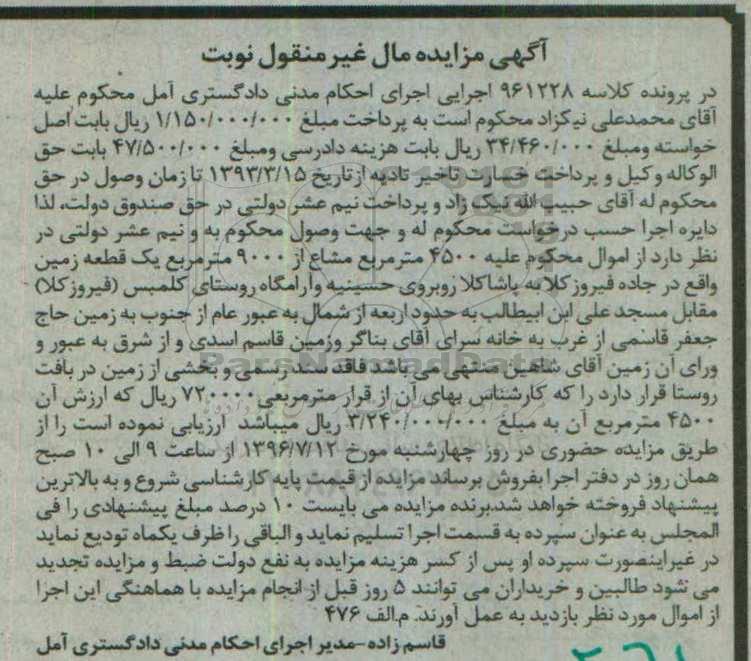 آگهی مزایده مال غیر منقول نوبت
در پرونده کلاسه ۹۶۱۲۲۸ اجرایی اجرای احکام مدنی دادگستری آمل محکوم علیه
آقای محمدعلی نیکزاد محکوم است به پرداخت مبلغ ۱/۱۵۰/۰۰۰/۰۰۰ ریال بابت اصل
خواسته ومبلغ ۳۴/۴۶۰/۰۰۰ ریال بابت هزینه دادرسی ومبلغ ۴۷/۵۰۰/۰۰۰ بابت حق
الوکاله وکیل و پرداخت خسارت تاخیر تادیه ازتاریخ ۱۳۹۳/۳/۱۵ تا زمان وصول در حق
محکوم له آقای حبیب الله نیک زاد و پرداخت نیم عشر دولتی در حق صندوق دولت، لذا
دایره اجرا حسب درخواست محکوم له و جهت وصول محکوم به و نیم عشر دولتی در
نظر دارد از اموال محکوم علیه ۴۵۰۰ مترمربع مشاع از ۹۰۰۰ مترمربع یک قطعه زمین
واقع در جاده فیروزکلا به پاشاکلا روبروی حسینیه وآرامگاه روستای کلمبس (فیروزکلا)
مقابل مسجد علی ابن ابیطالب به حدود اربعه از شمال به عبور عام از جنوب به زمین حاج
جعفر قاسمی از غرب به خانه سرای آقای بناگر وزمین قاسم اسدی و از شرق به عبور و
ورای آن زمین آقای شاهین منتهی می باشد فاقد سند رسمی و بخشی از زمین در بافت
روستا قرار دارد را که کارشناس بهای آن از قرار مترمربعی ۷۲۰۰۰۰ ریال که ارزش آن
۴۵۰۰ مترمربع آن به مبلغ ۳/۲۴۰/۰۰۰/۰۰۰ ریال میباشد ارزیابی نموده است را از
طریق مزایده حضوری در روز چهارشنبه مورخ ۱۳۹۶/۷/۱۲ از ساعت ۹ الی ۱۰ صبح
همان روز در دفتر اجرا بفروش برساند مزایده از قیمت پایه کارشناسی شروع و به بالاترین
پیشنهاد فروخته خواهد شد.برنده مزایده می بایست ۱۰ درصد مبلغ پیشنهادی را فی
المجلس به عنوان سپرده به قسمت اجرا تسلیم نماید و الباقی را ظرف یکماه تودیع نماید
در غیراینصورت سپرده او پس از کسر هزینه مزایده به نفع دولت ضبط و مزایده تجدید
می شود طالبین و خریداران می توانند ۵ روز قبل از انجام مزایده با هماهنگی این اجرا
از اموال مورد نظر بازدید به عمل آورند. م.الف ۴۷۶
قاسم زاده-مدیر اجرای احکام مدنی دادگستری آمل
ParsNamadData